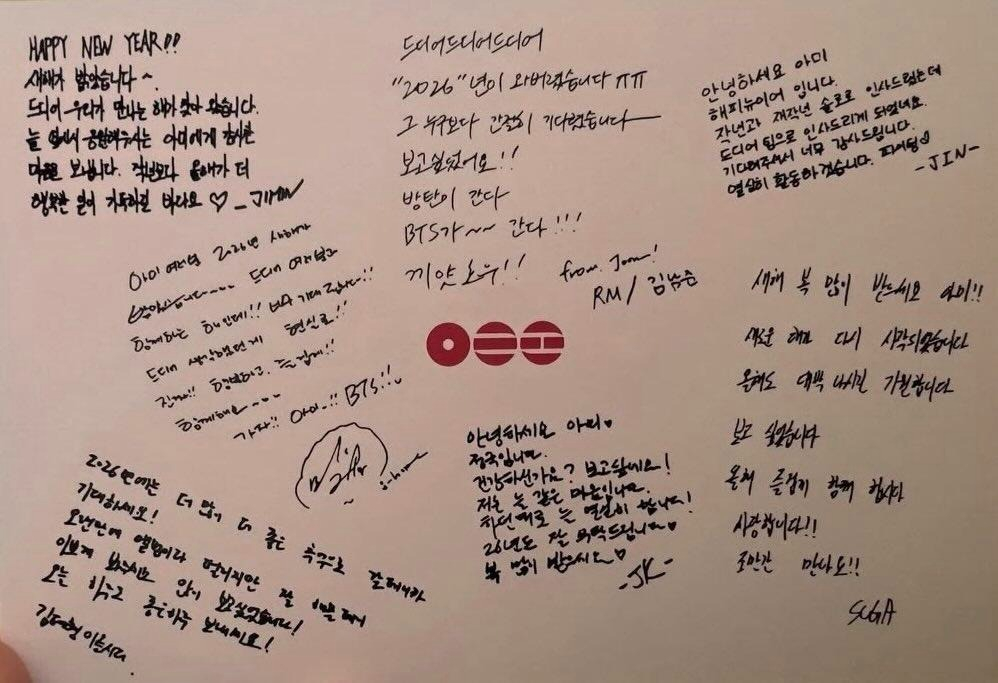 HAPPY NEW YEAR!!
새해가 밝았습니다 ~
드디어 우리가 만나는 해가 찾아 왔습니다.
늘 앞에서 응원해주시는 아미에게 감사한
마음을 보냅니다. 작년보다 올해가 더
행복한 일이 가득하길 바라요 ♡ - JIMIN
드디어드디어드디어
"2026"년이 와버렸습니다 ㅠㅠ
그 누구보다 간절히 기다렸습니다
보고싶었어요!!
방탄이 간다
BTS가~~ 간다!!!
끼얏호우!!
from. Joon!
RM / 김남준
안녕하세요 아미
해피뉴이어 입니다.
작년과 재작년 솔로로 인사드렸는데
드디어 팀으로 인사드리게 되었네요.
기다려주셔서 너무 감사드립니다.
열심히 활동하겠습니다. 파이팅♡
-JIN-
아미 여러분 2026년 새해가
밝았습니다.... 드디어 여러분과
함께하는 해인데!! 너무 기대됩니다!!
드디어 생각했던게 현실로!!
진짜!! 행복하고, 즐겁게!!
함께해요....
가자!! 아미..!! BTS!!
j-hope
새해 복 많이 받으세요 아미!!
새로운 해가 다시 시작되었습니다
올해도 대박 나시길 기원합니다
보고 싶었습니다
올해 즐겁게 함께 합시다
사랑합니다!!
조만간 만나요!!
SUGA
안녕하세요 아미♥
정국입니다.
건강하신가요? 보고싶네요!
저는 늘 같은 마음입니다.
하던대로 늘 열심히 합니다!
26년도 잘 부탁드립니다♥
복 많이 받으세요♡
-JK-
2026년에는 더 많이 더 좋은 추억으로 갈테니까
기대하세요!
오랜만에 앨범이라 떨리지만 잘
이쁘게 봐주시요 많이 보고싶었습니다!
오늘 하루도 좋은하루 보내세요!
김태형 이었습니다.